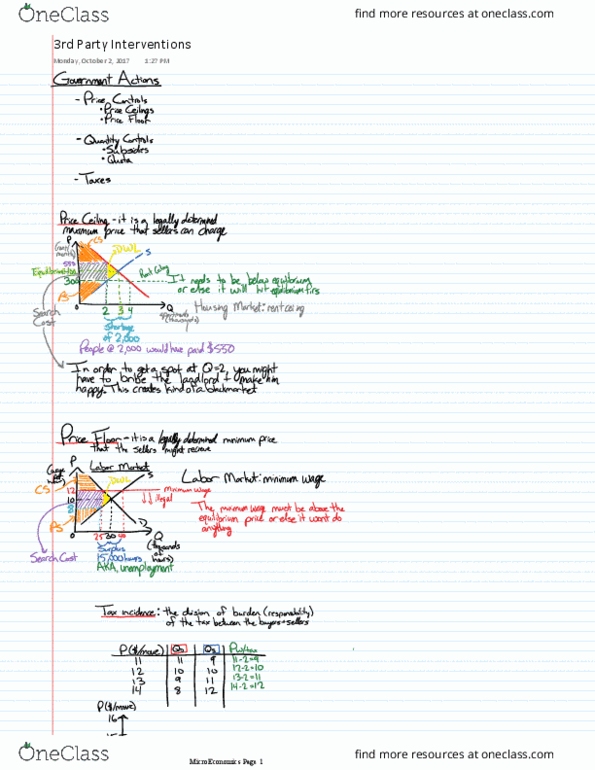 OneClass
find more resources at oneclass.com
3rd Party Interventions
Monday, October 2, 2017 1:27 PM
Government Actions
- Price Controls
• Price Ceilings
• Price Floor
- Quantity Controls
• Subsides
• Quota
- Taxes
Price Ceiling - it is a legally determined
maximum price that sellers can charge
P
CS
DWL
S
550
Equilibrium
300
Rent Ceiling
It needs to be below equilibrium
or else it will hit equilibrium first
PS
0
2 3 4
Q
apartments
(thousands)
Housing Market: rent ceiling
Search
Cost
Shortage
of 2,000
People @ 2,000 would have paid $550
In order to get a spot at Q=2, you might
have to bribe the landlord + make him
happy. This creates kind of a blackmarket
Price Floor - it is a legally determined minimum price
that the sellers might recieve
P
Labor Market
S
DWL
Labor Market: minimum wage
CS
12
10
8
minimum wage
↓↓ illegal
The minimum wage must be above the
equilibrium price or else it wont do
anything
PS
D
0
25 30 40
Q
(thousands
of
hours)
Search Cost
Surplus
15,000 hours
AKA, unemployment
Tax incidence: the division of burden (responsability)
of the tax between the buyers + sellers
P($/movie) QD QS P w/tax
11 11 9 11-2=9
12 10 10 12-2=10
13 9 11 13-2=11
14 8 12 14-2=12
P($/movie)
16
OneClass
find more resources at oneclass.com
MicroEconomics Page 1